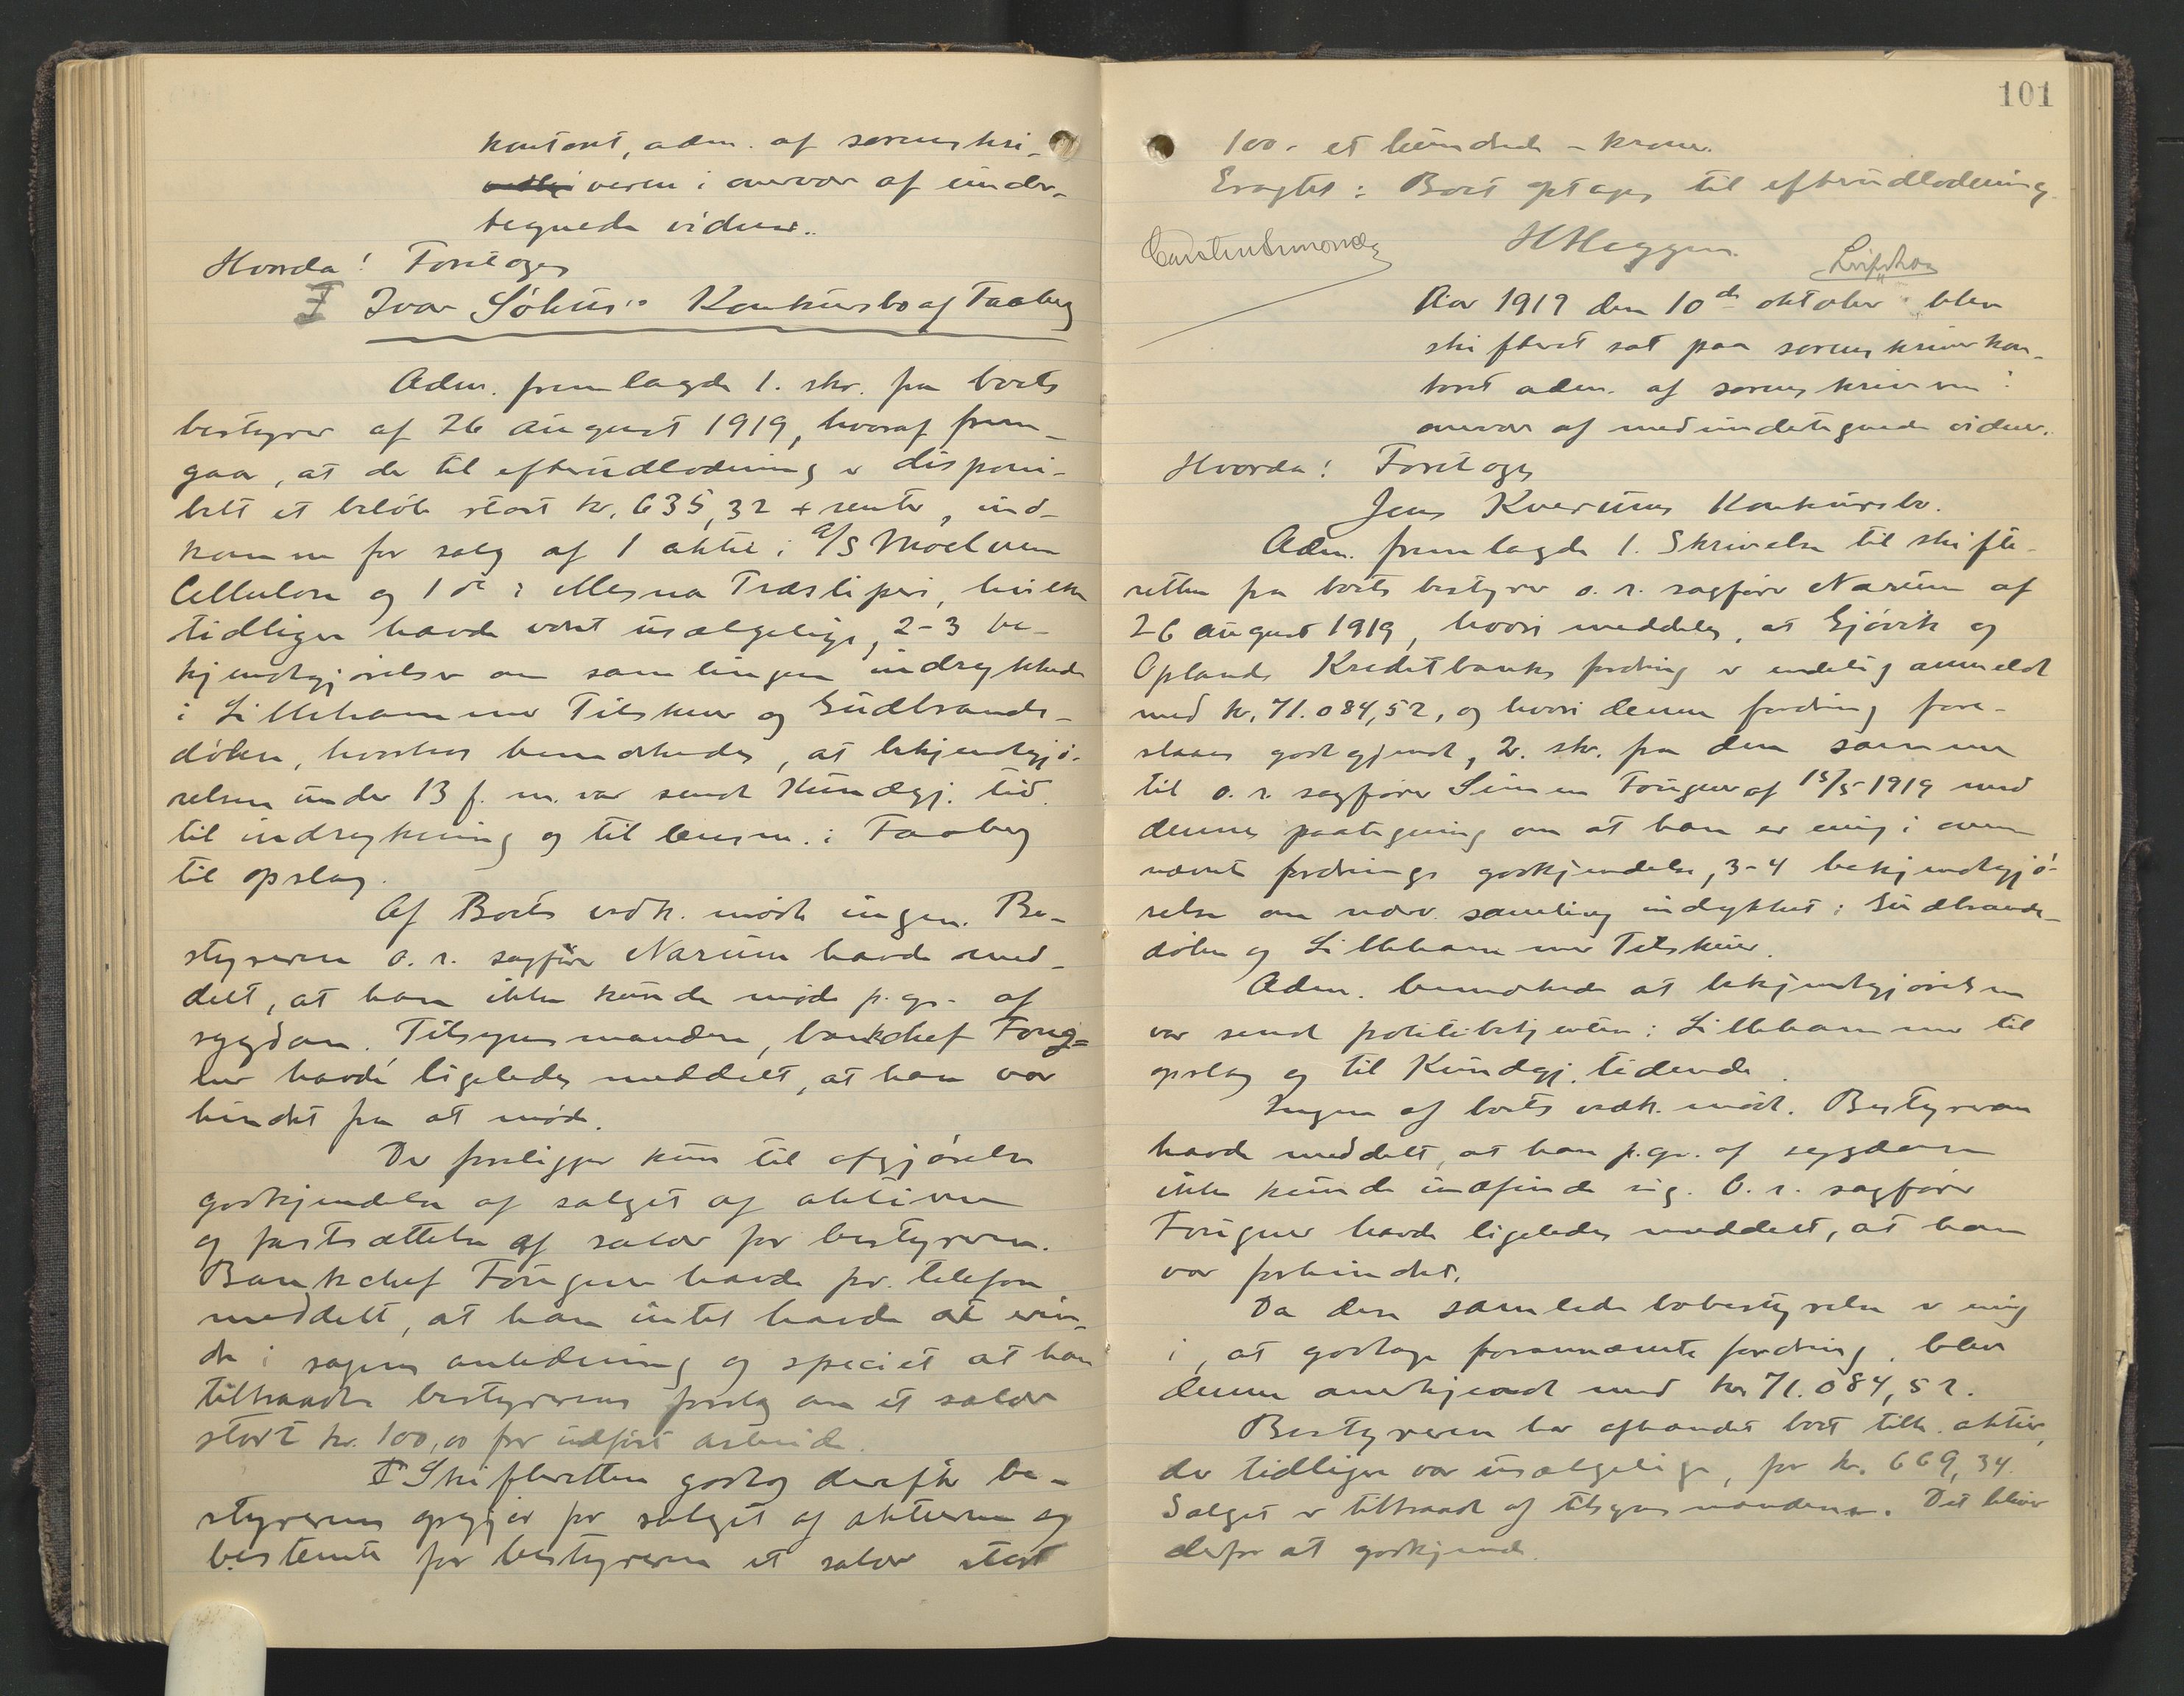 kontoret, adm. af sorenskri-
veren i overvær af under-
tegnede vidner.
Hvorda! Foretoges
I Ivar Söhus's Konkursbo af Faaberg
Adm. fremlagde 1. skr. fra boets
bestyrer af 26 august 1919, hvoraf frem-
gaar, at der til efterudlodning er disponi-
belt et beløb stort kr. 635,32 + renter, ind-
kommen for salg af 1 aktie i A/S Moelven
Cellulose og 1 do i Mesna Træsliperi, hvilke
tidligere havde været usælgelige, 2-3 be-
kjendtgjørelser om samlingen indrykkede
i Lillehammer Tilskuer og Gudbrands-
dølen, hvorhos bemerkedes, at bekjendtgjø-
relsen under 13 f. m. var sendt Kundgj. tid.
til indrykning og til lensm. i Faaberg
til opslag.
Af Boets vedk. mødte ingen. Be-
styreren o. r. sagfører Narum havde med-
delt, at han ikke kunde møde p. gr. af
sygdom. Tilsynsmanden, bankchef Foug-
ner havde ligeledes meddelt, at han var
hindret fra at møde.
Der foreligger kun til afgjørelse
godkjendelse af salget af aktierne
og fastsættelse af salær for bestyreren.
Bankchef Fougner havde pr. telefon
meddelt, at han intet havde at erin-
dre i sagens anledning og specielt at han
tiltraadte bestyrerens forslag om et salær
stort kr. 100,00 for udført arbeide.
Skifteretten godtog derefter be-
styrerens opgjør for salget af aktierne og
bestemte for bestyreren et salær stort
101
100 - et hundrede - kroner.
Eragtet: Boet optages til efterudlodning.
Carsten Simonsen HHeggen
Aar 1919 den 10de oktober blev
skifteret sat paa sorenskriverkon-
toret adm. af sorenskriveren i
overvær af medundertegnede vidner.
Hvorda! Foretoges
Jens Kverums Konkursbo.
Adm. fremlagde 1. Skrivelse til skifte-
retten fra boets bestyrer o. r. sagfører Narum af
26 august 1919, hvori meddeles, at Gjøvik og
Oplands Kreditbanks fordring er endelig anmeldt
med kr. 71.084,52, og hvori denne fordring fore-
slaaes godkjendt, 2. skr. fra den samme
til o. r. sagfører Simen Fougner af 15/5 1919 med
dennes paategning om at han er enig i oven
nævnte fordrings godkjendelse, 3-4 bekjendtgjø-
relse om nærv. samling indrykket i Gudbrands-
dølen og Lillehammer Tilskuer.
Adm. bemerkede at bekjendtgjørelsen
var sendt politibetjenten i Lillehammer til
opslag og til Kundgj. tidende.
Ingen af boets vedk. mødte. Bestyreren
havde meddelt, at han p. gr. af sygdom
ikke kunde indfinde sig. O. r. sagfører
Fougner havde ligeledes meddelt, at han
var forhindret.
Da den samlede bobestyrelse er enig
i, at godtage forannævnte fordring, blev
denne anerkjendt med kr. 71.084,52.
Bestyreren har afhændet boet tilh. aktier,
der tidligere var usælgelige, for kr. 669,34.
Salget er tiltraadt af tilsynsmanden. Det bliver
derfor at godkjende.